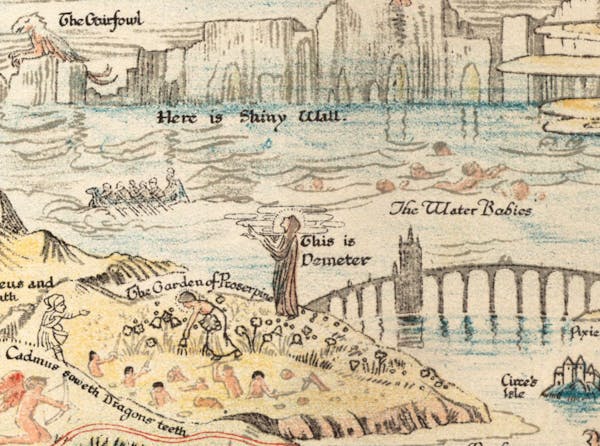 The Gairfowl
Here is Shiny Wall.
The Water Babies
This is
Demeter
The Garden of Proserpine
eus and
ath
Cadmus soweth Dragons teeth
Circe's
Isle